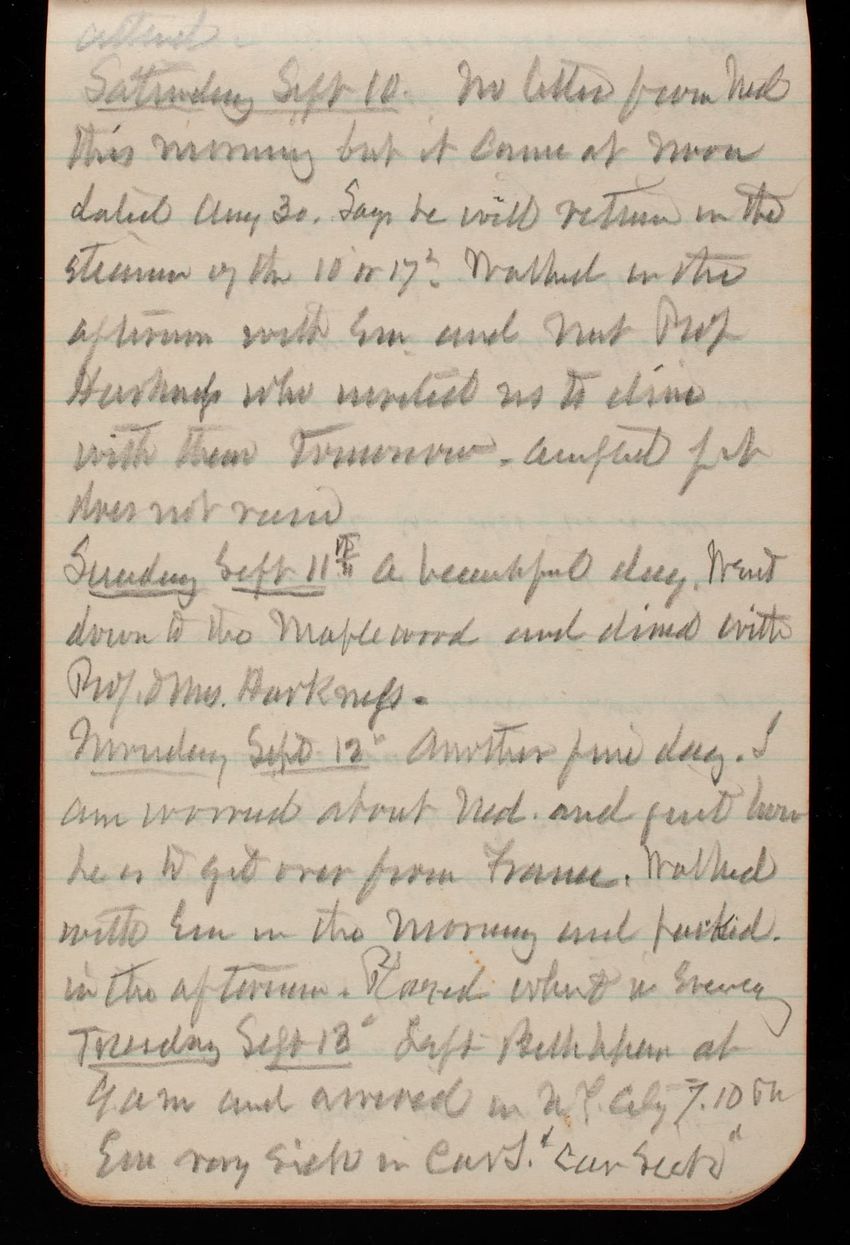 attend.
Saturday Sept 10. No letter from Ned
this morning but it came at noon
dated Aug 30. Says he will return in the
steamer of the 10 or 17". Walked in the
afternoon with Em and met Prof
Harkness who invited us to dine
with them tomorrow. accepted if it
does not rain
Sunday Sept 11th a beautiful day. Went
down to the Maplewood and dined with
Prof. & Mrs. Harkness.
Monday Sept 12" Another fine day. I
am worried about Ned. and just how
he is to get over from France. Walked
with Em in the Morning and packed.
in the afternoon. Played whist in Evening
Tuesday Sept 13" Left Bethlehem at
9 am and arrived in N.Y. City 7.10 PM
Em very sick in Cars. "Car Sick"